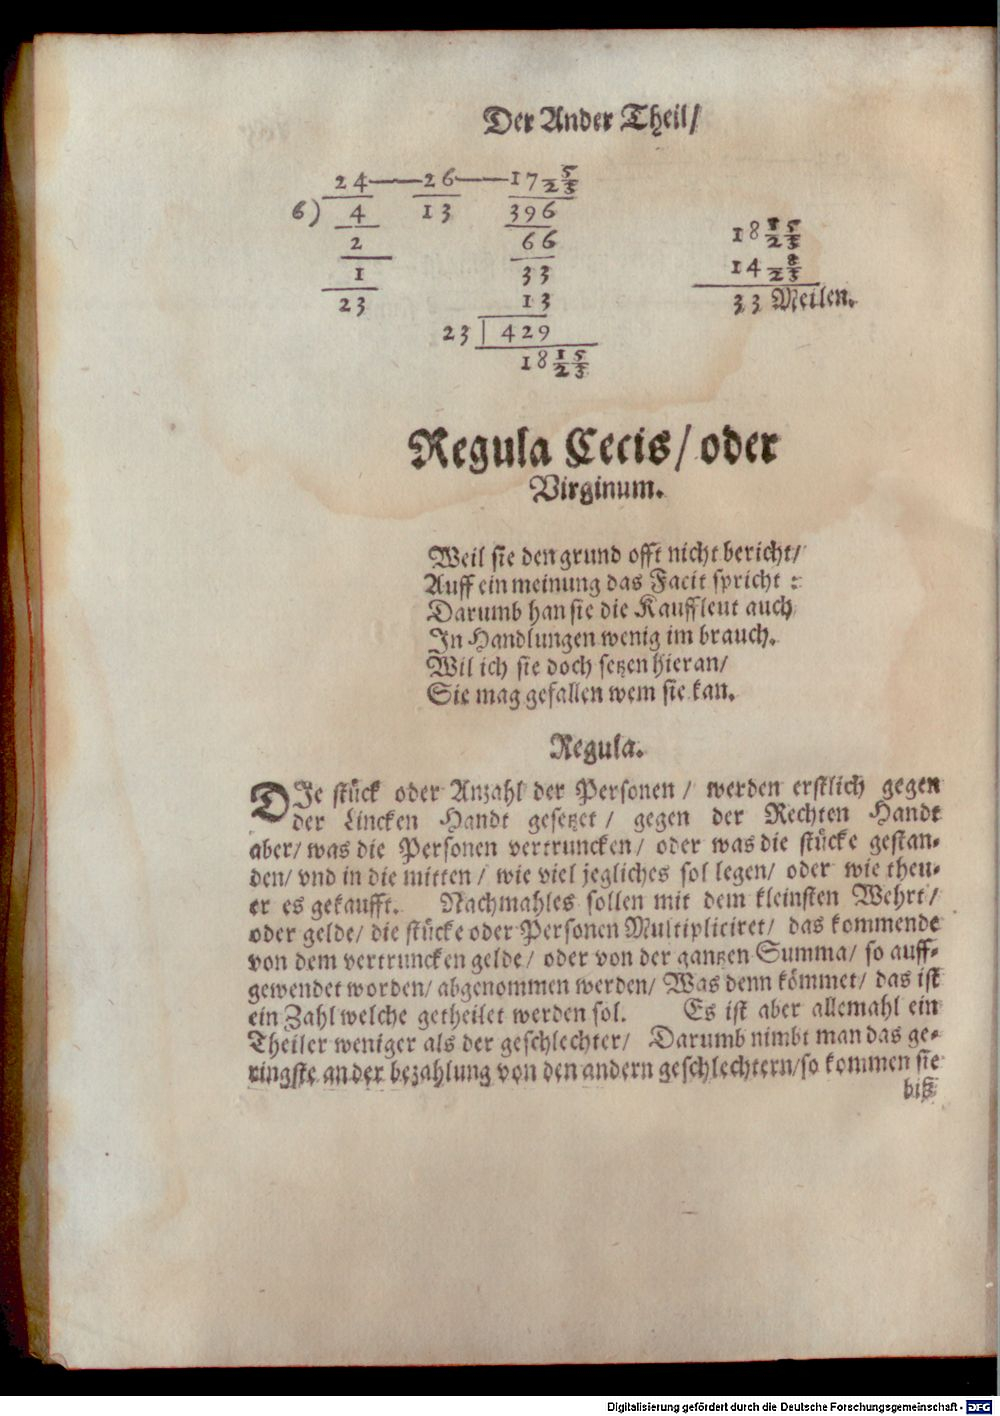 Der Ander Theil/
24——26——17 5/23
6) 4 13 396
2 66
1 33
23 13
23 | 429
18 15/23
18 15/23
14 8/23
33 Meilen.
Regula Cecis/ oder
Virginum.
Weil sie den grund offt nicht bericht/
Auff ein meinung das Facit spricht :
Darumb han sie die Kauffleut auch
In Handlungen wenig im brauch.
Wil ich sie doch setzen hieran/
Sie mag gefallen wem sie kan.
Regula.
DIe stück oder Anzahl der Personen / werden erstlich gegen
der Lincken Handt gesetzet / gegen der Rechten Handt
aber/ was die Personen vertruncken/ oder was die stücke gestan-
den/ vnd in die mitten / wie viel jegliches sol legen/ oder wie theu-
er es gekaufft. Nachmahles sollen mit dem kleinsten Wehrt/
oder gelde/ die stücke oder Personen Multipliciret/ das kommende
von dem vertruncken gelde/ oder von der gantzen Summa/ so auff-
gewendet worden/ abgenommen werden/ Was denn kömmet/ das ist
ein Zahl welche getheilet werden sol. Es ist aber allemahl ein
Theiler weniger als der geschlechter/ Darumb nimbt man das ge-
ringste an der bezahlung von den andern geschlechtern/ so kommen sie
biß
Digitalisierung gefördert durch die Deutsche Forschungsgemeinschaft - DFG